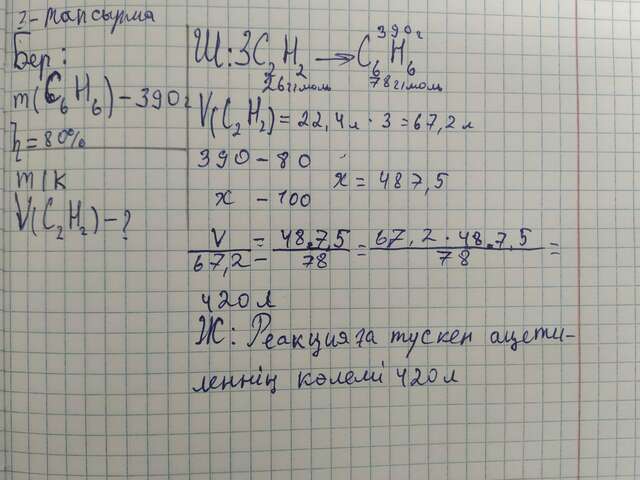 2-тапсырма
Бер:
m(C₆H₆)-390г
η=80%
т/к
V(C₂H₂)-?
390г
Ш: 3C₂H₂ → C₆H₆
26г/моль 78г/моль
V(C₂H₂)=22,4л·3=67,2л
390-80
x=487,5
x -100
V/67,2 = 48.7,5/78 = 67,2·48.7,5/78 =
420л
Ж: Реакцияға тускен ацети-
леннің көлемі 420л